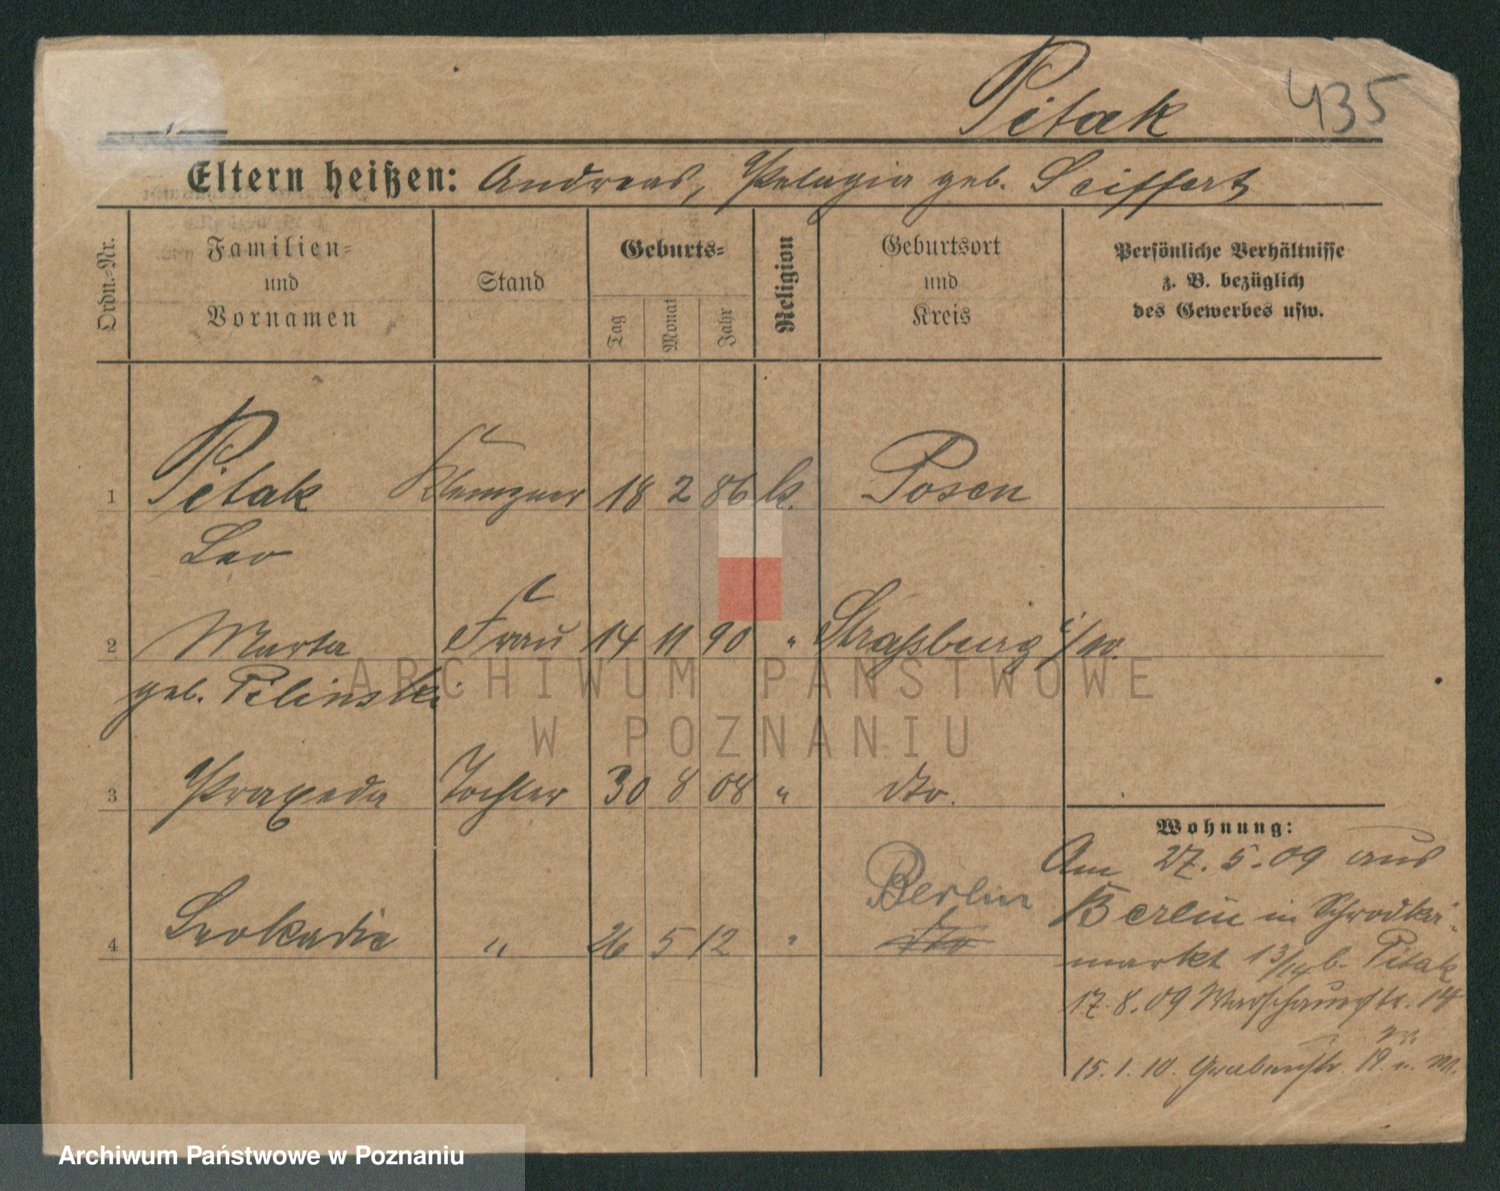 Pitak 435
Eltern heißen: Andreas, Pelagia geb. Seiffert
Ordn.-Nr.
Familien-
und
Vornamen
Stand
Geburts-
Tag
Monat
Jahr
Religion
Geburtsort
und
Kreis
Persönliche Verhältnisse
z. B. bezüglich
des Gewerbes usw.
1 Pitak Klempner 18 2 86 k. Posen
Leo
2 Marta Frau 14 11 90 " Straßburg i/W.
geb. Pilinski
3 Praxeda Tochter 30 8 08 " dto.
Berlin
4 Leokadie " 26 5 12 " dto
Wohnung:
Am 27. 5. 09 aus
Berlin in Schrodka-
markt 13/14 b. Pitak
17. 8. 09 Warschauerstr. 14
15. 1. 10. Grabenstr. 19
ARCHIWUM PAŃSTWOWE
W POZNANIU
Archiwum Państwowe w Poznaniu